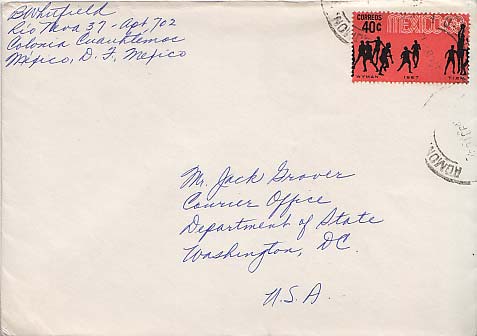 B Whitfield
Rio Neva 37 - Apt. 702
Colonia Cuauhtemoc
México, D. F., Mexico
CORREOS
40¢
MEXICO68
WYMAN 1967 TIEV
ADMON
Mr. Jack Grover
Courier Office
Department of State
Washington, DC.
U.S.A.